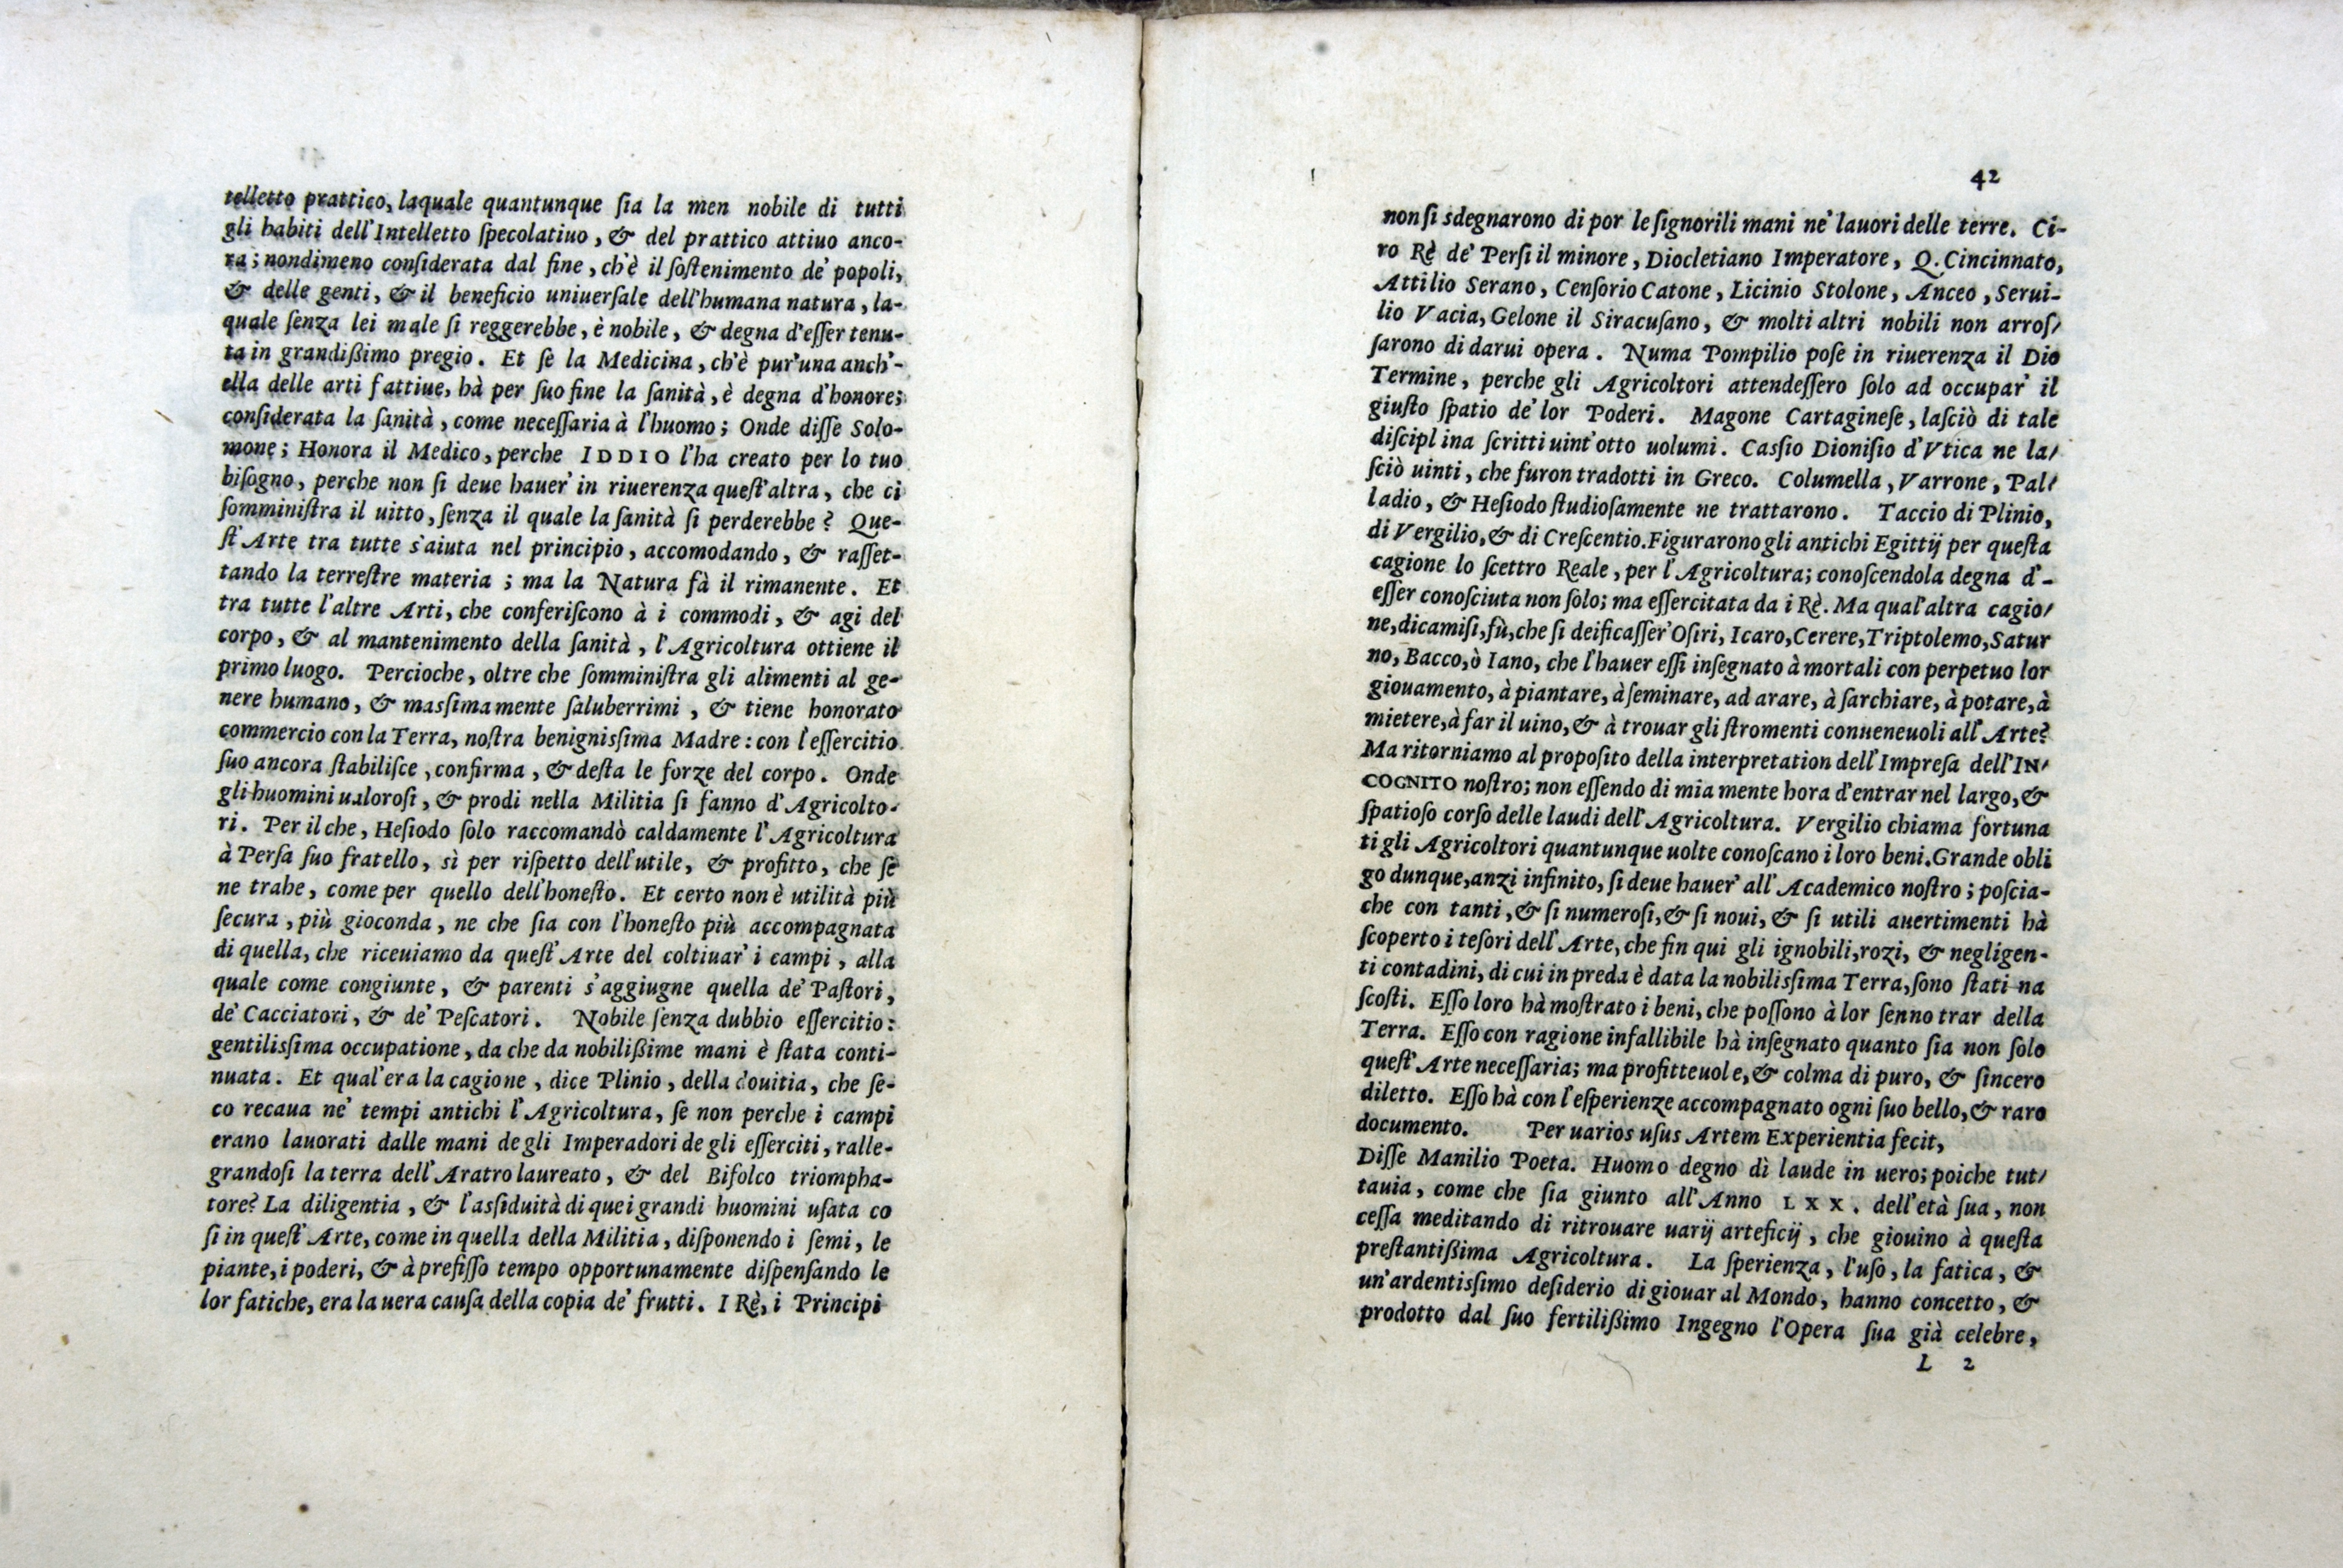 telletto prattico, laquale quantunque ſia la men nobile di tutti
gli habiti dell'Intelletto ſpecolatiuo, & del prattico attiuo anco-
ra; nondimeno conſiderata dal fine, ch'è il ſoſtenimento de' popoli,
& delle genti, & il beneficio uniuerſale dell'humana natura, la-
quale ſenza lei male ſi reggerebbe, è nobile, & degna d'eſſer tenu-
ta in grandißimo pregio. Et ſe la Medicina, ch'è pur'una anch'-
ella delle arti fattiue, hà per ſuo fine la ſanità, è degna d'honore;
conſiderata la ſanità, come neceſſaria à l'huomo; Onde diſſe Solo-
mone; Honora il Medico, perche IDDIO l'ha creato per lo tuo
biſogno, perche non ſi deue hauer' in riuerenza queſt'altra, che ci
ſomminiſtra il uitto, ſenza il quale la ſanità ſi perderebbe? Que-
ſt'Arte tra tutte s'aiuta nel principio, accomodando, & raſſet-
tando la terreſtre materia; ma la Natura fà il rimanente. Et
tra tutte l'altre Arti, che conferiſcono à i commodi, & agi del
corpo, & al mantenimento della ſanità, l'Agricoltura ottiene il
primo luogo. Percioche, oltre che ſomminiſtra gli alimenti al ge-
nere humano, & massimamente ſaluberrimi, & tiene honorato
commercio con la Terra, noſtra benignissima Madre: con l'eſſercitio
ſuo ancora ſtabiliſce, confirma, & deſta le forze del corpo. Onde
gli huomini ualoroſi, & prodi nella Militia ſi fanno d'Agricolto-
ri. Per il che, Heſiodo ſolo raccomandò caldamente l'Agricoltura
à Perſa ſuo fratello, sì per riſpetto dell'utile, & profitto, che ſe
ne trahe, come per quello dell'honeſto. Et certo non è utilità più
ſecura, più gioconda, ne che ſia con l'honeſto più accompagnata
di quella, che riceuiamo da queſt'Arte del coltiuar' i campi, alla
quale come congiunte, & parenti s'aggiugne quella de' Paſtori,
de' Cacciatori, & de' Peſcatori. Nobile ſenza dubbio eſſercitio:
gentilissima occupatione, da che da nobilißime mani è ſtata conti-
nuata. Et qual'era la cagione, dice Plinio, della douitia, che ſe-
co recaua ne' tempi antichi l'Agricoltura, ſe non perche i campi
erano lauorati dalle mani de gli Imperadori de gli eſſerciti, ralle-
grandoſi la terra dell'Aratro laureato, & del Bifolco triompha-
tore? La diligentia, & l'assiduità di quei grandi huomini uſata co
ſi in queſt'Arte, come in quella della Militia, diſponendo i ſemi, le
piante, i poderi, & à prefiſſo tempo opportunamente diſpenſando le
lor fatiche, era la uera cauſa della copia de' frutti. I Rè, i Principi
42
non ſi sdegnarono di por le ſignorili mani ne' lauori delle terre. Ci-
ro Rè de' Perſi il minore, Diocletiano Imperatore, Q. Cincinnato,
Attilio Serano, Cenſorio Catone, Licinio Stolone, Anceo, Serui-
lio Vacia, Gelone il Siracuſano, & molti altri nobili non arroſ/
ſarono di darui opera. Numa Pompilio poſe in riuerenza il Dio
Termine, perche gli Agricoltori attendeſſero ſolo ad occupar' il
giuſto ſpatio de' lor Poderi. Magone Cartagineſe, laſciò di tale
diſcipl ina ſcritti uint'otto uolumi. Caſſio Dioniſio d'Vtica ne la/
ſciò uinti, che furon tradotti in Greco. Columella, Varrone, Pal/
ladio, & Heſiodo ſtudioſamente ne trattarono. Taccio di Plinio,
di Vergilio, & di Creſcentio. Figurarono gli antichi Egittij per queſta
cagione lo ſcettro Reale, per l'Agricoltura; conoſcendola degna d'-
eſſer conoſciuta non ſolo; ma eſſercitata da i Rè. Ma qual'altra cagio/
ne, dicamiſi, fù, che ſi deificaſſer' Oſiri, Icaro, Cerere, Triptolemo, Satur
no, Bacco, ò Iano, che l'hauer eſſi inſegnato à mortali con perpetuo lor
giouamento, à piantare, à ſeminare, ad arare, à ſarchiare, à potare, à
mietere, à far il uino, & à trouar gli ſtromenti conueneuoli all'Arte?
Ma ritorniamo al propoſito della interpretation dell'Impreſa dell'IN/
COGNITO noſtro; non eſſendo di mia mente hora d'entrar nel largo, &
ſpatioſo corſo delle laudi dell'Agricoltura. Vergilio chiama fortuna
ti gli Agricoltori quantunque uolte conoſcano i loro beni. Grande obli
go dunque, anzi infinito, ſi deue hauer' all'Academico noſtro; poſcia-
che con tanti, & ſi numeroſi, & ſi noui, & ſi utili auertimenti hà
ſcoperto i teſori dell'Arte, che fin qui gli ignobili, rozi, & negligen-
ti contadini, di cui in preda è data la nobilissima Terra, ſono ſtati na
ſcoſti. Eſſo loro hà moſtrato i beni, che poſſono à lor ſenno trar della
Terra. Eſſo con ragione infallibile hà inſegnato quanto ſia non ſolo
queſt'Arte neceſſaria; ma profitteuole, & colma di puro, & ſincero
diletto. Eſſo hà con l'eſperienze accompagnato ogni ſuo bello, & raro
documento. Per uarios uſus Artem Experientia fecit,
Diſſe Manilio Poeta. Huomo degno dì laude in uero; poiche tut/
tauia, come che ſia giunto all'Anno LXX. dell'età ſua, non
ceſſa meditando di ritrouare uarij arteficij, che giouino à queſta
preſtantißima Agricoltura. La ſperienza, l'uſo, la fatica, &
un'ardentissimo deſiderio di giouar al Mondo, hanno concetto, &
prodotto dal ſuo fertilißimo Ingegno l'Opera ſua già celebre,
L 2